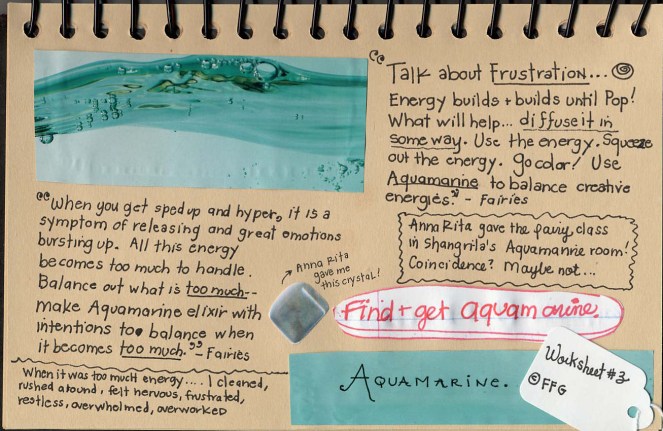 "Talk about Frustration...
Energy builds + builds until Pop!
What will help... diffuse it in
some way. Use the energy. Squeeze
out the energy. Go color! Use
Aquamarine to balance creative
energies." - Fairies
Anna Rita gave the fairy class
in Shangrila's Aquamarine room!
Coincidence? Maybe not...
"When you get sped up and hyper, it is a
symptom of releasing and great emotions
bursting up. All this energy
becomes too much to handle.
Balance out what is too much...
make Aquamarine elixir with
intentions to balance when
it becomes too much." - Fairies
Anna Rita
gave me
this crystal!
Find + get aquamarine.
When it was too much energy.... I cleaned,
rushed around, felt nervous, frustrated,
restless, overwhelmed, overworked
AQUAMARINE.
Worksheet #3
© FFG